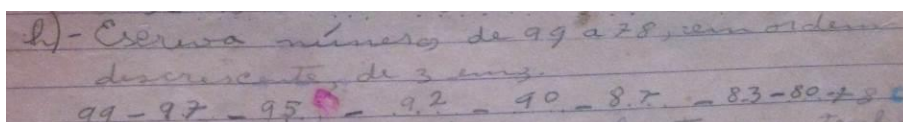 h) - Escreva números de 99 a 78, em ordem
discrescente, de 3 em 3.
99 - 97 - 95 - 92 - 90 - 87 - 83 - 80 - 78